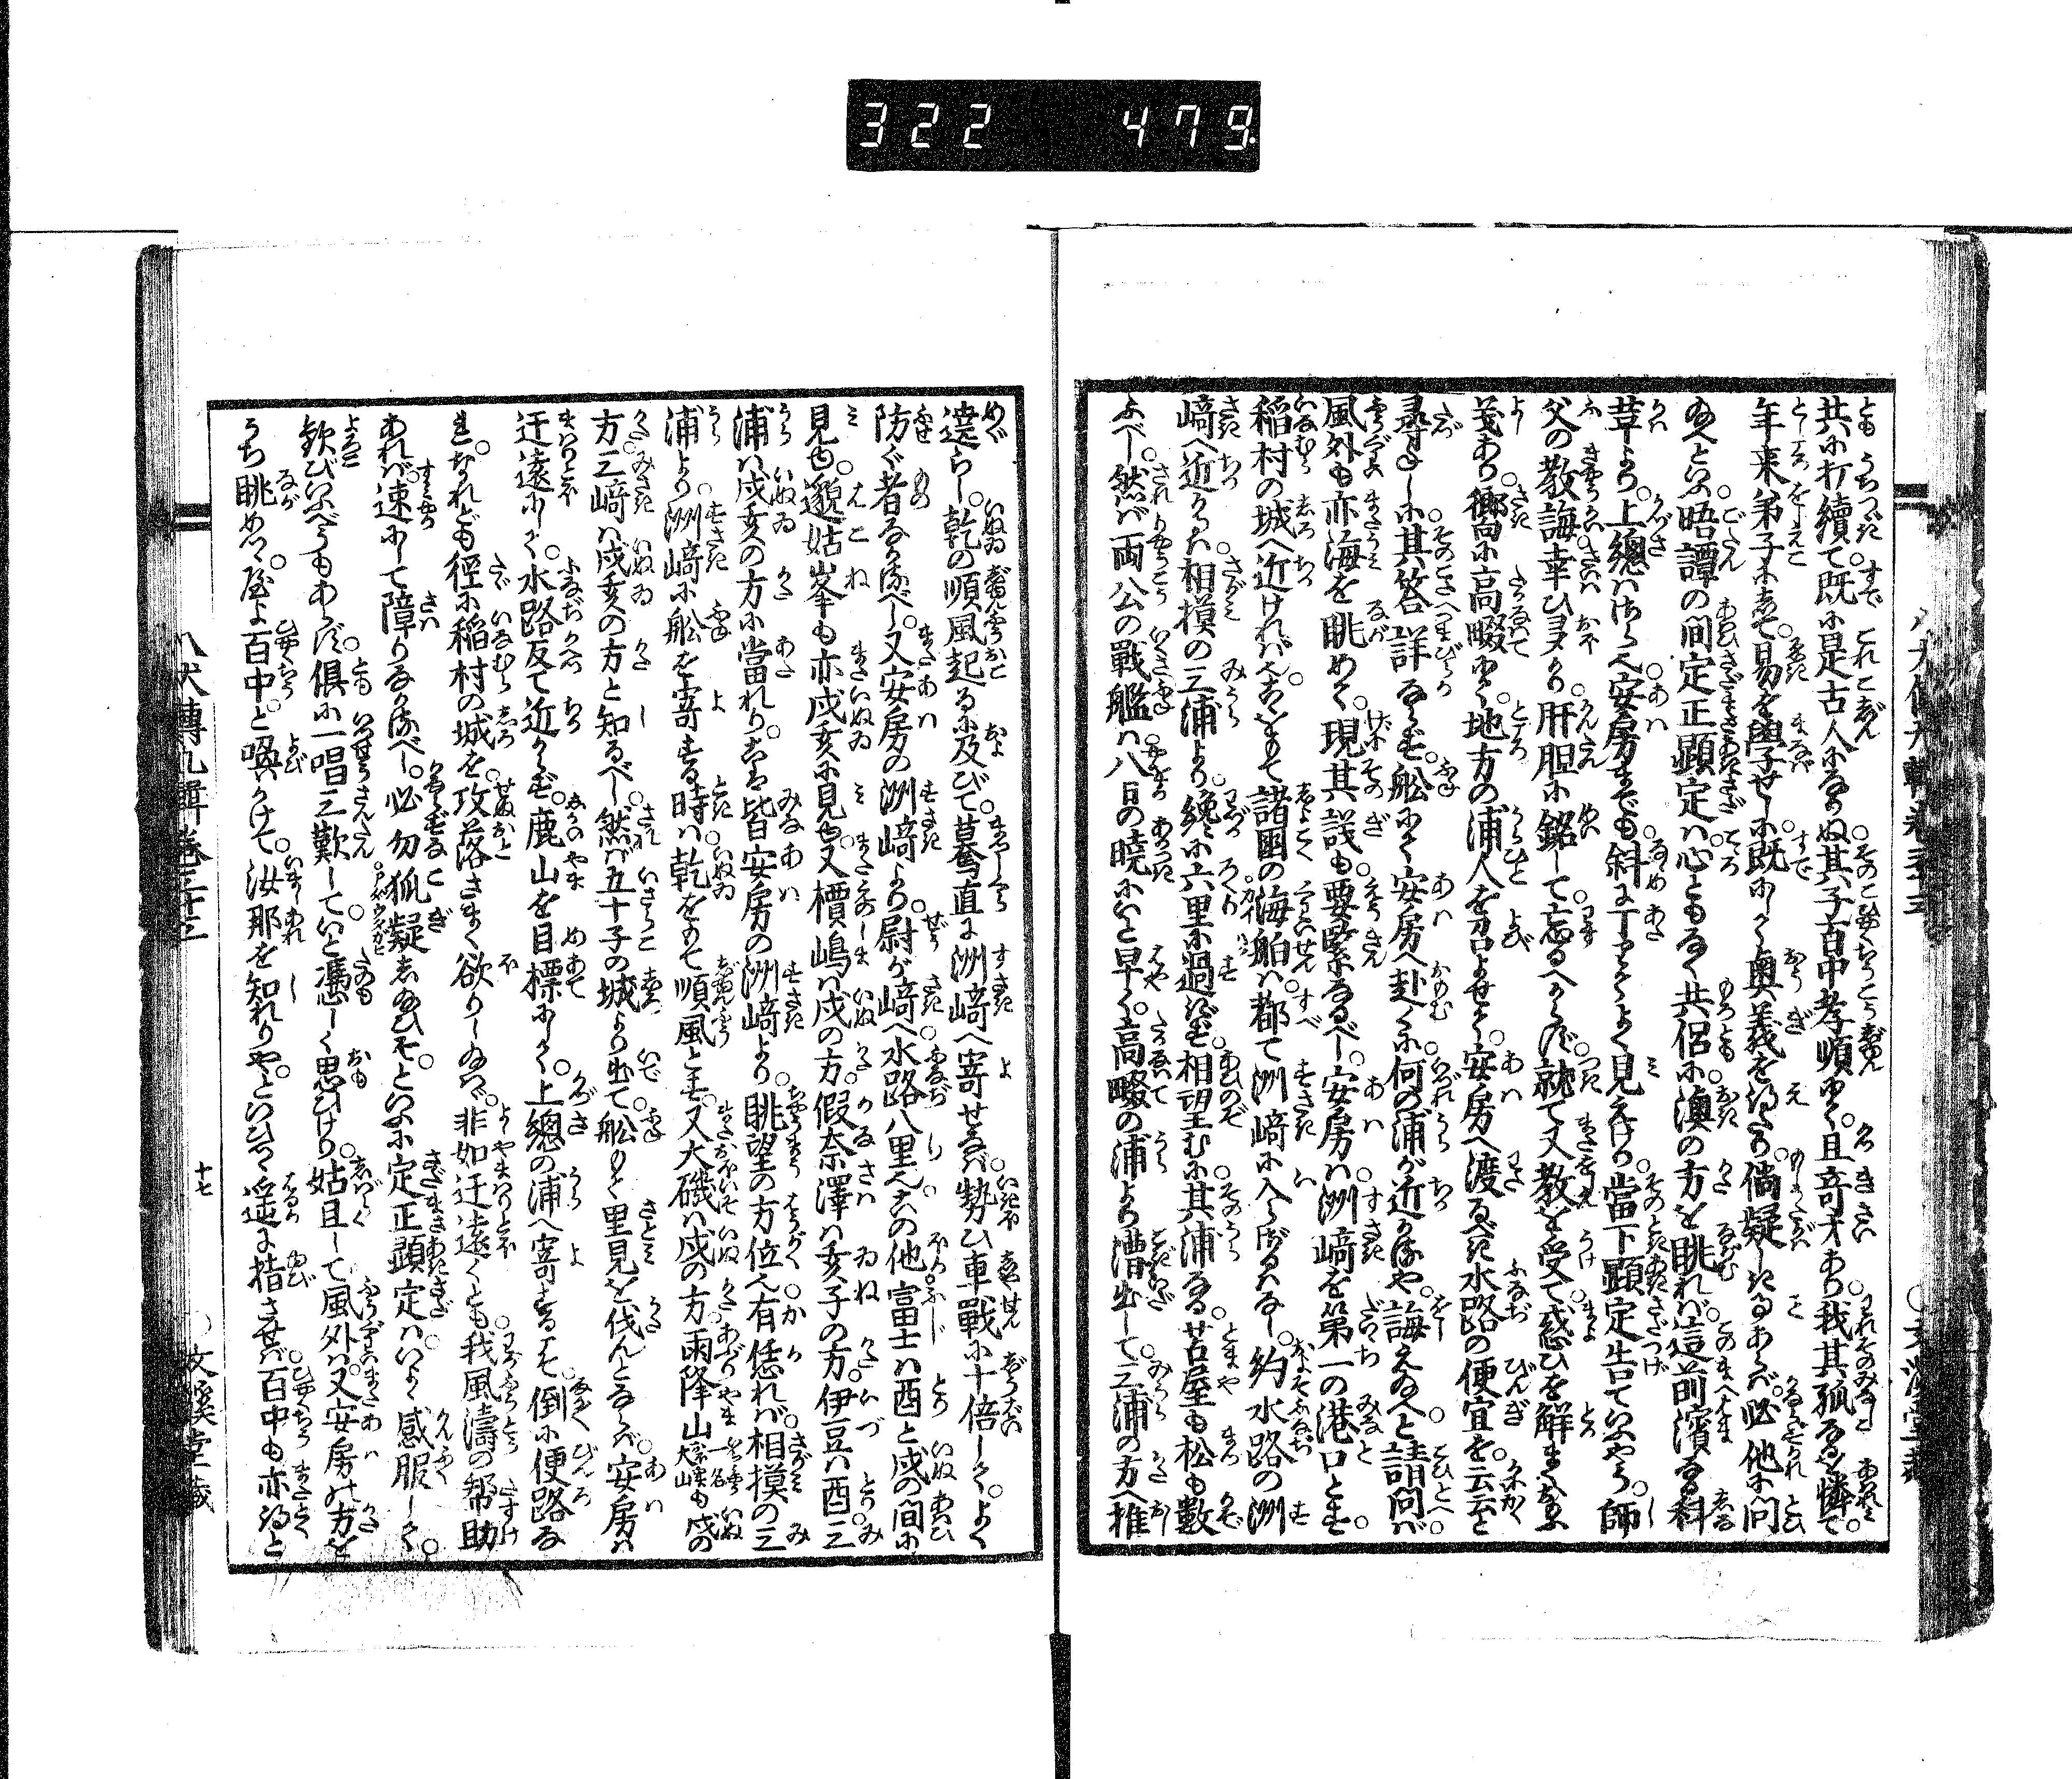 322 479
共に打續て。既に是古人になりぬ。其子百中孝順にて。且奇才あり。我其孤なるを憐て。
年来弟子にして。易を學せしに。既にして奥義を得たり。倘疑しきことあらば。必他に問
給へといふ。晤譚の間。定正顕定は。心ともなく共侶に。澳の方を眺れば。這前濱なる科
革より。上總はさら也。安房までも。斜に丁々とよく見えけり。當下顕定告ていふやう。師
父の教誨幸ひ多かり。肝胆に銘して。忘るべからず。就て又教を受て。惑ひを解まくほ
義あり。嚮に高畷にて。地方の浦人を召よせて。安房へ渡るべき水路の便宜を。云云と
尋ねしに。其答詳ならず。舩にて安房へ赴くに。何の浦が近かるや。誨え給へと請問ば。
風外も亦海を眺めて。現其議も要緊なるべし。安房は。洲﨑を第一の港口とす。
稲村の城へ近ければ也。こゝをもて諸國の海舶は。都て洲﨑に入らざるはなし。約水路の洲
﨑へ近かるは。相模の三浦より。纔に六里に過ぎず。相望むに其浦なる。苫屋も松も数
ふべし。然ば両公の戰艦は。八日の暁にいと早く。高畷の浦より漕出して。三浦の方へ推
遶らし。乾の順風起るに及びて。驀直に洲﨑へ寄せなば。勢ひ車戰に十倍して。よく
防ぐ者なかるべし。又安房の洲﨑より。尉が﨑へ水路八里也。その他富士は酉と戌の間に
見ゆ。邈姑峯も亦戌亥に見ゆ。又櫝嶋は戌の方。假奈澤は亥子の方。伊豆は酉。三
浦は戌亥の方に當れり。こは皆安房の洲﨑より。眺望の方位也。有恁れば。相模の三
浦より。洲﨑に舩を寄する時は。乾をもて順風とす。又大磯は戌の方。雨降山一名大山も戌の
方。三﨑は戌亥の方と知るべし。然ば五十子の城より出て。舩して里見を伐んとならば。安房は
迂遠にして。水路反て近からず。鹿山を目標にして。上總の浦へ寄するこそ。倒に便路な
れ。なれども徑に稲村の城を。攻落さまく欲りし給はゞ。非如迂遠くとも。我風濤の帮助
あれば。速にして障りなかるべし。必勿狐疑し給ひそ。といふに定正顕定は。いよゝ感服して。
歓びいふべうもあらず。俱に一唱三歎して。いと憑しく思ひけり。姑且して風外は。又安房の方を
うち眺めつゝ。屋よ百中。と喚かけて。汝那を知れりや。といひつゝ遥に指させば。百中も亦得と
八犬傳九輯卷三十三
十七
文溪堂藏